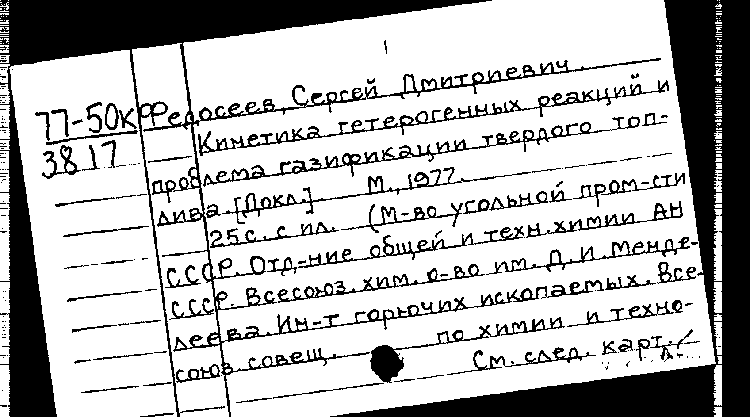 77-50к Федосеев, Сергей Дмитриевич.
3817 Кинетика гетерогенных реакций и
проблема газификации твердого топ-
лива. [Докл.] М., 1977.
25 с. с ил. (М-во угольной пром-сти
СССР. Отд-ние общей и техн. химии АН
СССР. Всесоюз. хим. о-во им. Д. И. Менде-
леева. Ин-т горючих ископаемых. Все-
союз. совещ. по химии и техно-
См. след. карт.